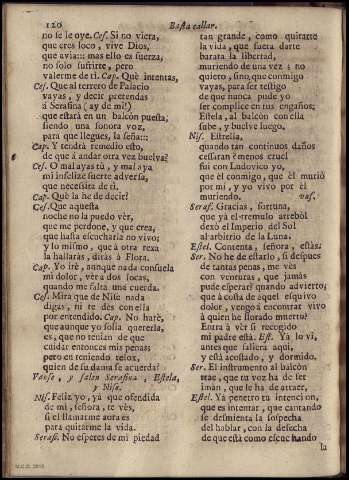 120
Basta callar.
no se le oye. Ces. Si no viera,
que eres loco, vive Dios,
que avia::: mas ello es fuerza,
no solo sufrirte, pero
valerme de ti. Cap. Què intentas,
Ces. Que al terrero de Palacio
vayas, y decir pretendas
à Serafina (ay de mi!)
que estarà en un balcòn puesta,
siendo una sonora voz,
para que llegues, la seña:::
Cap. Y tendrà remedio esto,
de que à andar otra vez buelva?
Ces. O mal ayas tù, y mal aya
mi infelize suerte adversa,
que necessita de ti.
Cap. Què la he de decir?
Ces. Que aquesta
noche no la puedo vèr,
que me perdone, y que crea,
que hasta escucharla no vivo;
y lo mismo, que à otra rexa
la hallaràs, diràs à Flora.
Cap. Yo irè, aunque nada consuela
mi dolor, vèr à dos locas,
quando me falta una cuerda.
Ces. Mira que de Nise nada
digas, ni te dès con ella
por entendido. Cap. No harè,
que aunque yo solia quererla,
es, que no tenian de que
cuidar entonces mis penas;
pero en teniendo telox,
quien de su dama se acuerda?
Vanse, y salen Serafina, Estela,
y Nise.
Nis. Feliz yo, yà que ofendida
de mi, señora, te vès,
si el llamarme aora es
para quitarme la vida.
Seraf. No esperes de mi piedad
tan grande, como quitarte
la vida, que fuera darte
barata la libertad,
muriendo de una vez: no
quiero, sino, que conmigo
vayas, para ser testigo
de que nunca pude yo
ser complice en tus engaños;
Estela, al balcòn con ella
sube, y buelve luego.
Nis. Estrella,
quando tan continuos daños
cessaràn è menos cruel
fui con Ludovico yo,
que èl conmigo, que èl muriò
por mi, y yo vivo por èl
muriendo. vas.
Seraf. Gracias, fortuna,
que yà el tremulo arrebòl
dexò el Imperio del Sol
al arbitrio de la Luna.
Estel. Contenta, señora, estàs.
Ser. No he de estarlo, si despues
de tantas penas, me vès
con venturas, que jamàs
pude esperar? quando advierto,
que à costa de aquel esquivo
dolor, vengo à encontrar vivo
à quien he llorado muerto?
Entra à vèr si recogido
mi padre està. Est. Yà lo vi,
antes que saliera aqui,
y està acostado, y dormido.
Ser. El instrumento al balcòn
trae, que tu voz ha de ser
imàn, que le ha de atraer,
Estel. Yà penetro tu intencion,
que es intentar, que cantando
se desmienta la sospecha
del hablar, con la desecha
de que està como escuchando
la